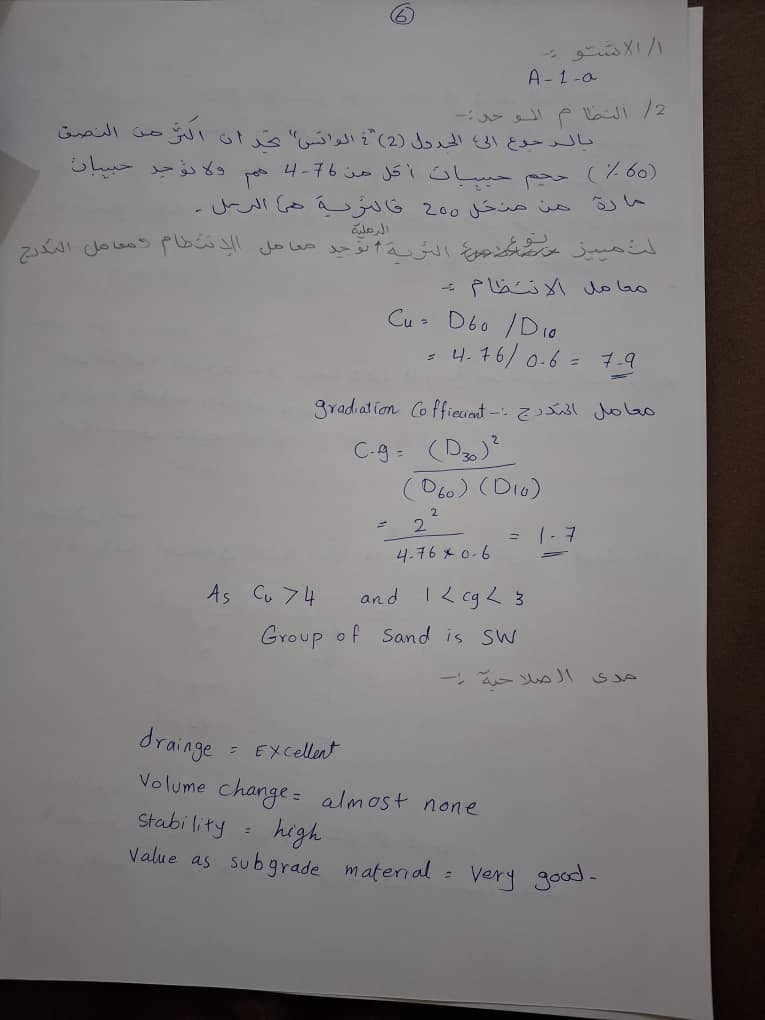 6
1/ الاشتو :-
A-1-a
2/ النظام الموحد :-
بالرجوع الى الجدول (2) "في الواتس" نجد ان اكثر من النصف
(60%) حجم حبيبات أقل من 4-76 مم ولا توجد حبيبات
مارة من منخل 200 فالتربة هى الرمل .
لتمييز نوع التربة الرملية توجد معامل الإنتظام ومعامل التدرج
معامل الانتظام :-
Cu = D60 / D10
= 4.76/ 0.6 = 7.9
معامل التدرج :- gradiation Coffiecient
C.g = (D30)²
(D60) (D10)
= 2² = 1.7
4.76 * 0.6
As Cu > 4 and 1 < cg < 3
Group of Sand is SW
مدى الصلاحية :-
drainge = EXcellent
Volume change = almost none
Stability = high
Value as subgrade material = Very good -